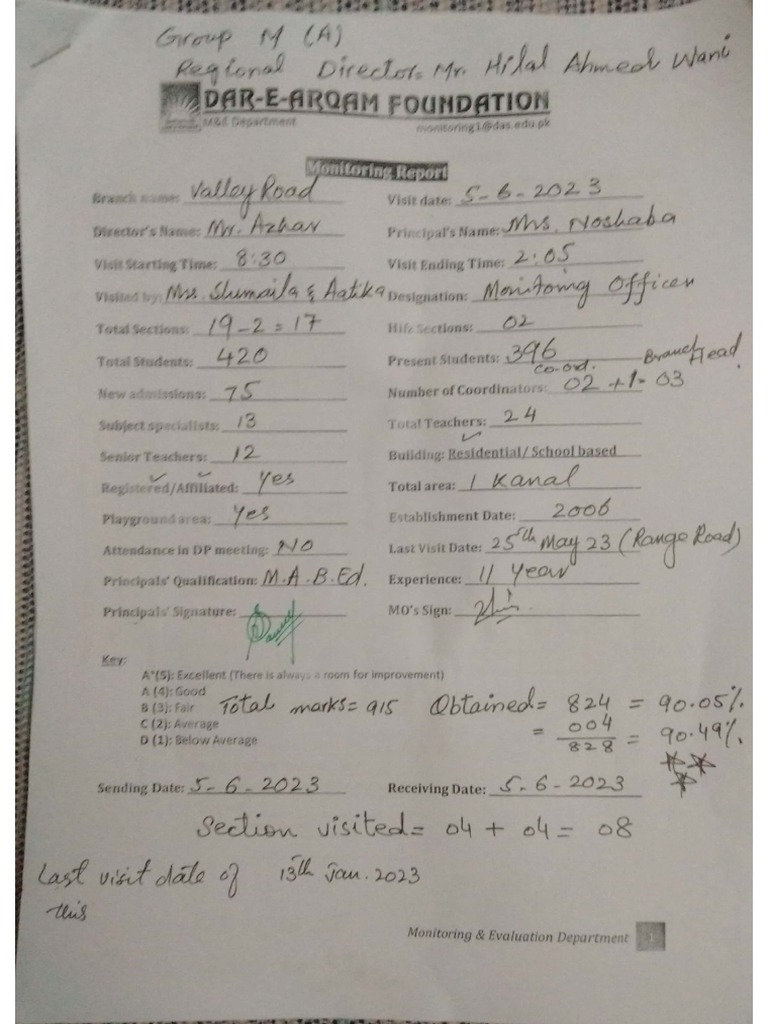 Group M (A)
Regional Director= Mr. Hilal Ahmed Wani
DAR-E-ARQAM FOUNDATION
M&E Department monitoring1@das.edu.pk
Monitoring Report
Branch name: Valley Road Visit date: 5-6-2023
Director's Name: Mr. Azhar Principal's Name: Mrs. Noshaba
Visit Starting Time: 8:30 Visit Ending Time: 2:05
Visited by: Mrs. Shumaila & Aatika Designation: Monitoring Officer
Total Sections: 19-2=17 Hifz Sections: 02
Total Students: 420 Present Students: 396
Co-ord. Branch Head
New admissions: 75 Number of Coordinators: 02 +1= 03
Subject specialists: 13 Total Teachers: 24
Senior Teachers: 12 Building: Residential/ School based
Registered/Affiliated: Yes Total area: 1 Kanal
Playground area: Yes Establishment Date: 2006
Attendance in DP meeting: NO Last Visit Date: 25th May 23 (Range Road)
Principals' Qualification: M.A.B.Ed. Experience: 11 Year
Principals' Signature: MO's Sign:
Key:
A*(5): Excellent (There is always a room for improvement)
A (4): Good
B (3): Fair Total marks= 915 Obtained= 824 = 90.05%
C (2): Average = 004
D (1): Below Average 828 = 90.49%.
Sending Date: 5-6-2023 Receiving Date: 5-6-2023
Section visited= 04 + 04 = 08
Last visit date of 13th Jan. 2023
this
Monitoring & Evaluation Department 1